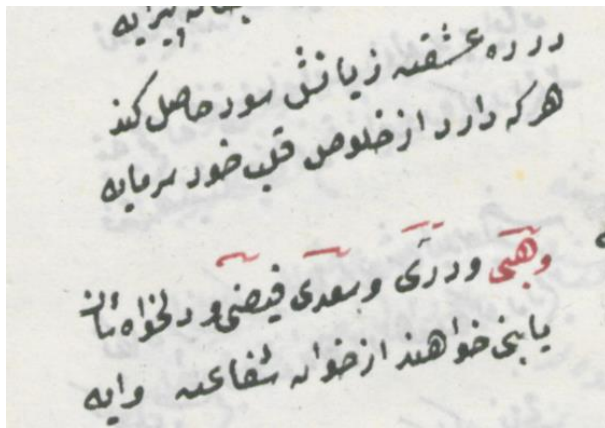 پیرایه
در ره عشقت زیانش سود حاصل کند
هر که دارد از خلوص قلب خود سرمایه
وهبی و درّی و سعدی فیضی و دلخواه شان
یا بنی خواهند از خوان شفاعت وایه